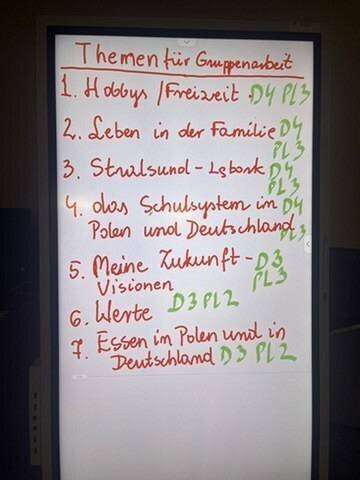 Themen für Gruppenarbeit
1. Hobbys / Freizeit D4 PL3
2. Leben in der Familie D4
PL3
3. Stralsund - Lębork D4
PL3
4. das Schulsystem in D4
Polen und Deutschland PL3
5. Meine Zukunft - D3
Visionen PL3
6. Werte D3 PL2
7. Essen in Polen und in
Deutschland D3 PL2